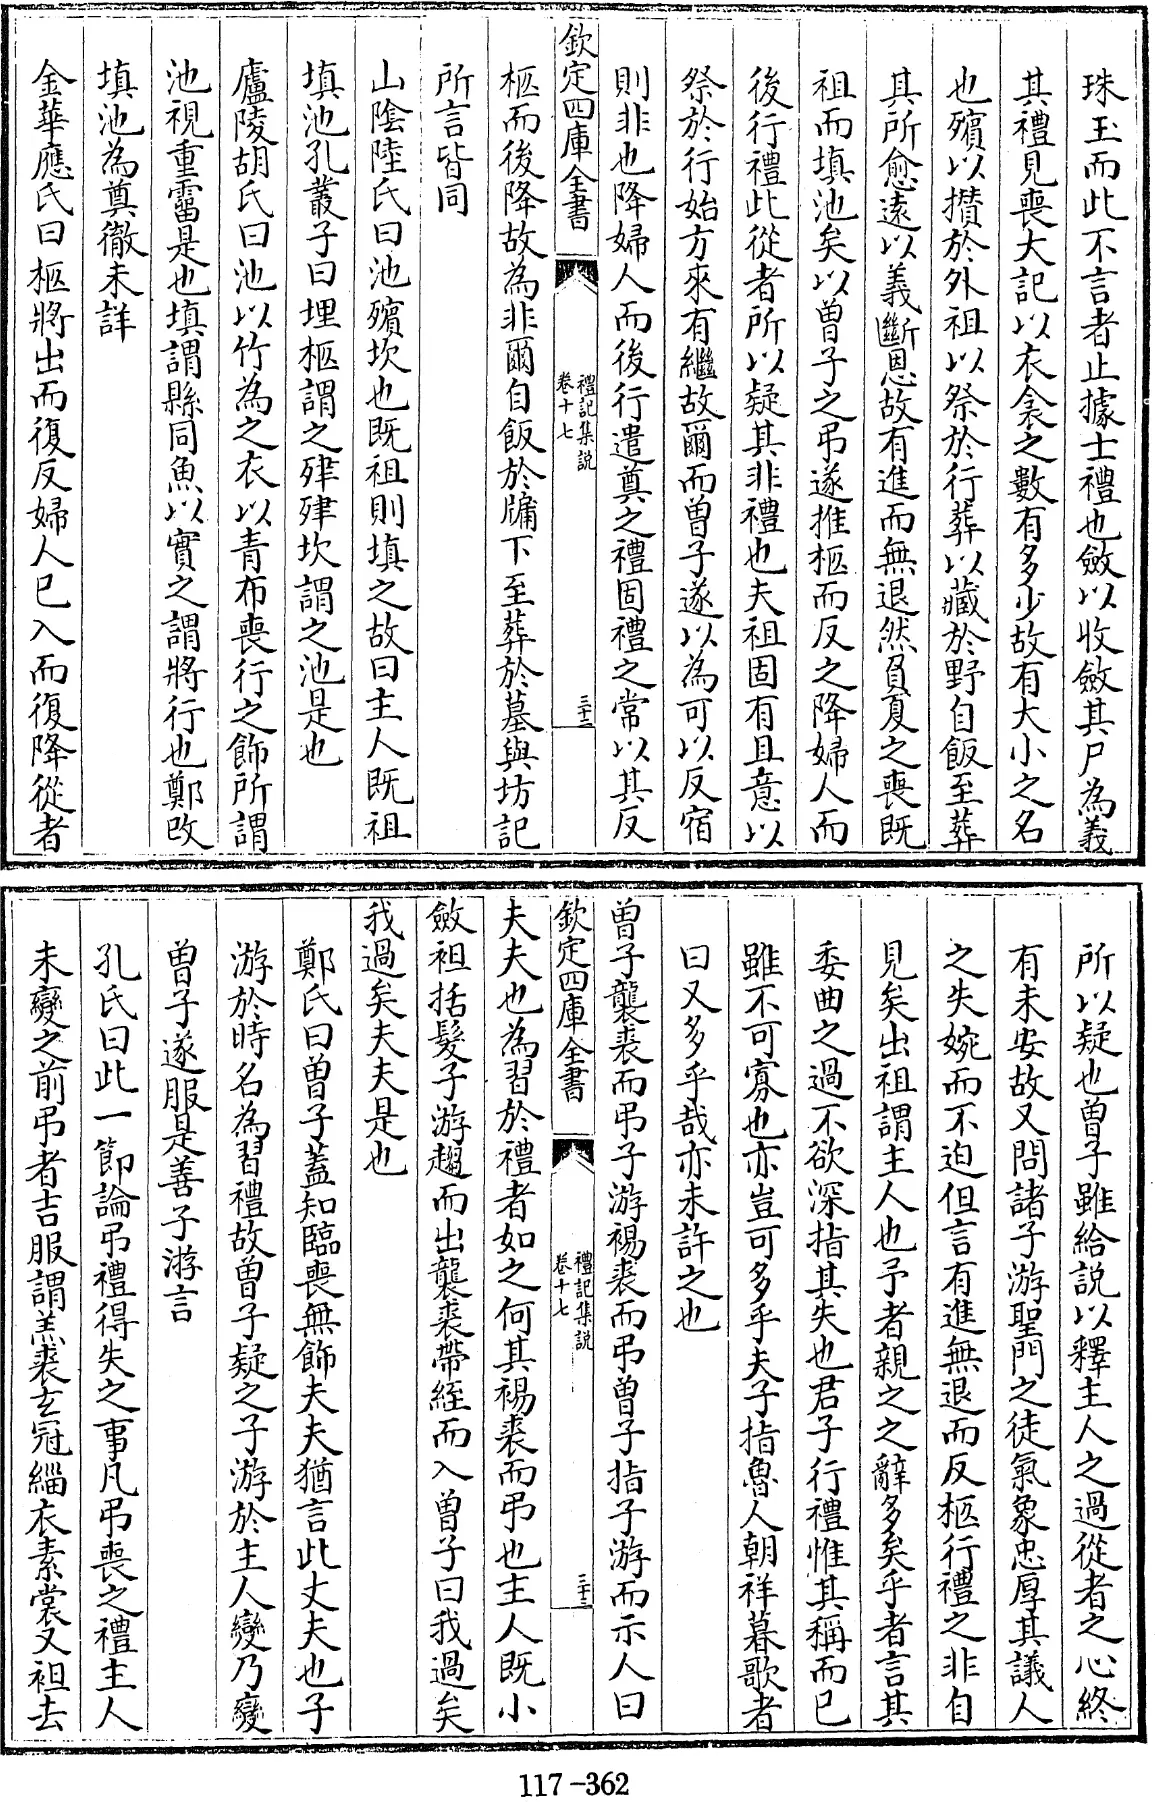 珠玉而此不言者止據士禮也斂以收斂其尸為義
其禮見喪大記以衣衾之數有多少故有大小之名
也殯以攢於外祖以祭於行葬以藏於野自飯至葬
其所愈遠以義斷恩故有進而無退然負夏之喪既
祖而填池矣以曾子之弔遂推柩而反之降婦人而
後行禮此從者所以疑其非禮也夫祖固有且意以
祭於行始方來有繼故爾而曾子遂以為可以反宿
則非也降婦人而後行遣奠之禮固禮之常以其反
欽定四庫全書
禮記集說
卷十七
三十二
柩而後降故為非爾自飯於牖下至葬於墓與坊記
所言皆同
山陰陸氏曰池殯坎也既祖則填之故曰主人既祖
填池孔叢子曰埋柩謂之殔殔坎謂之池是也
廬陵胡氏曰池以竹為之衣以青布喪行之飾所謂
池視重霤是也填謂縣同魚以實之謂將行也鄭改
填池為奠徹未詳
金華應氏曰柩將出而復反婦人已入而復降從者
所以疑也曾子雖給說以釋主人之過從者之心終
有未安故又問諸子游聖門之徒氣象忠厚其議人
之失婉而不迫但言有進無退而反柩行禮之非自
見矣出祖謂主人也予者親之之辭多矣乎者言其
委曲之過不欲深指其失也君子行禮惟其稱而已
雖不可寡也亦豈可多乎夫子指魯人朝祥暮歌者
曰又多乎哉亦未許之也
曾子襲裘而弔子游裼裘而弔曾子指子游而示人曰
欽定四庫全書
禮記集說
卷十七
三十三
夫夫也為習於禮者如之何其裼裘而弔也主人既小
斂袒括髮子游趨而出襲裘帶絰而入曾子曰我過矣
我過矣夫夫是也
鄭氏曰曾子蓋知臨喪無飾夫夫猶言此丈夫也子
游於時名為習禮故曾子疑之子游於主人變乃變
曾子遂服是善子游言
孔氏曰此一節論弔禮得失之事凡弔喪之禮主人
未變之前弔者吉服謂羔裘玄冠緇衣素裳又袒去
117-362